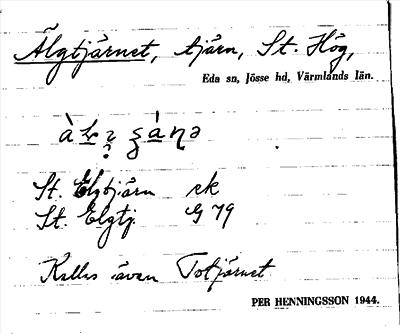 Älgtjärnet, tjärn, St. Hög,
Eda sn, Jösse hd, Värmlands län.
St. Elgtjärn ek
St. Elgtj. G 79
Kallas även Totjärnet
PER HENNINGSSON 1944.